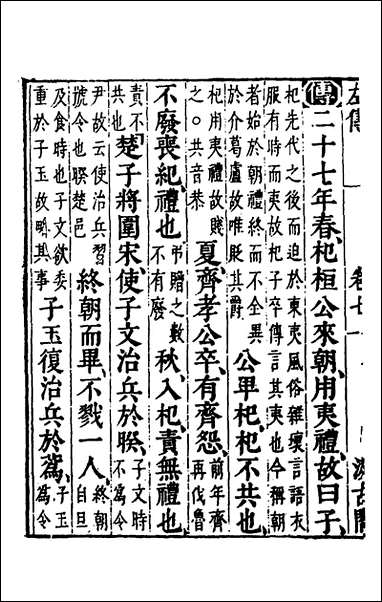 左傳 卷七 一 汲古閣
傳二十七年春杞桓公來朝用夷禮故曰子
杞先代之後而迫於東夷風俗雜壞言語衣
服有時而夷故杞子卒傳言其夷也今稱朝
者始於朝禮終而不全異
於介葛盧故唯貶其爵公卑杞杞不共也
杞用夷禮故賤
之〇共音恭夏齊孝公卒有齊怨前年齊再伐魯
不廢喪紀禮也弔贈之數不有廢秋入杞責無禮也
責不共也楚子將圍宋使子文治兵於睽子文時不為令
尹故云使治兵習
號令也睽楚邑終朝而畢不戮一人終朝自旦
及食時也子文欲委
重於子玉故略其事子玉復治兵於蔿子玉為令